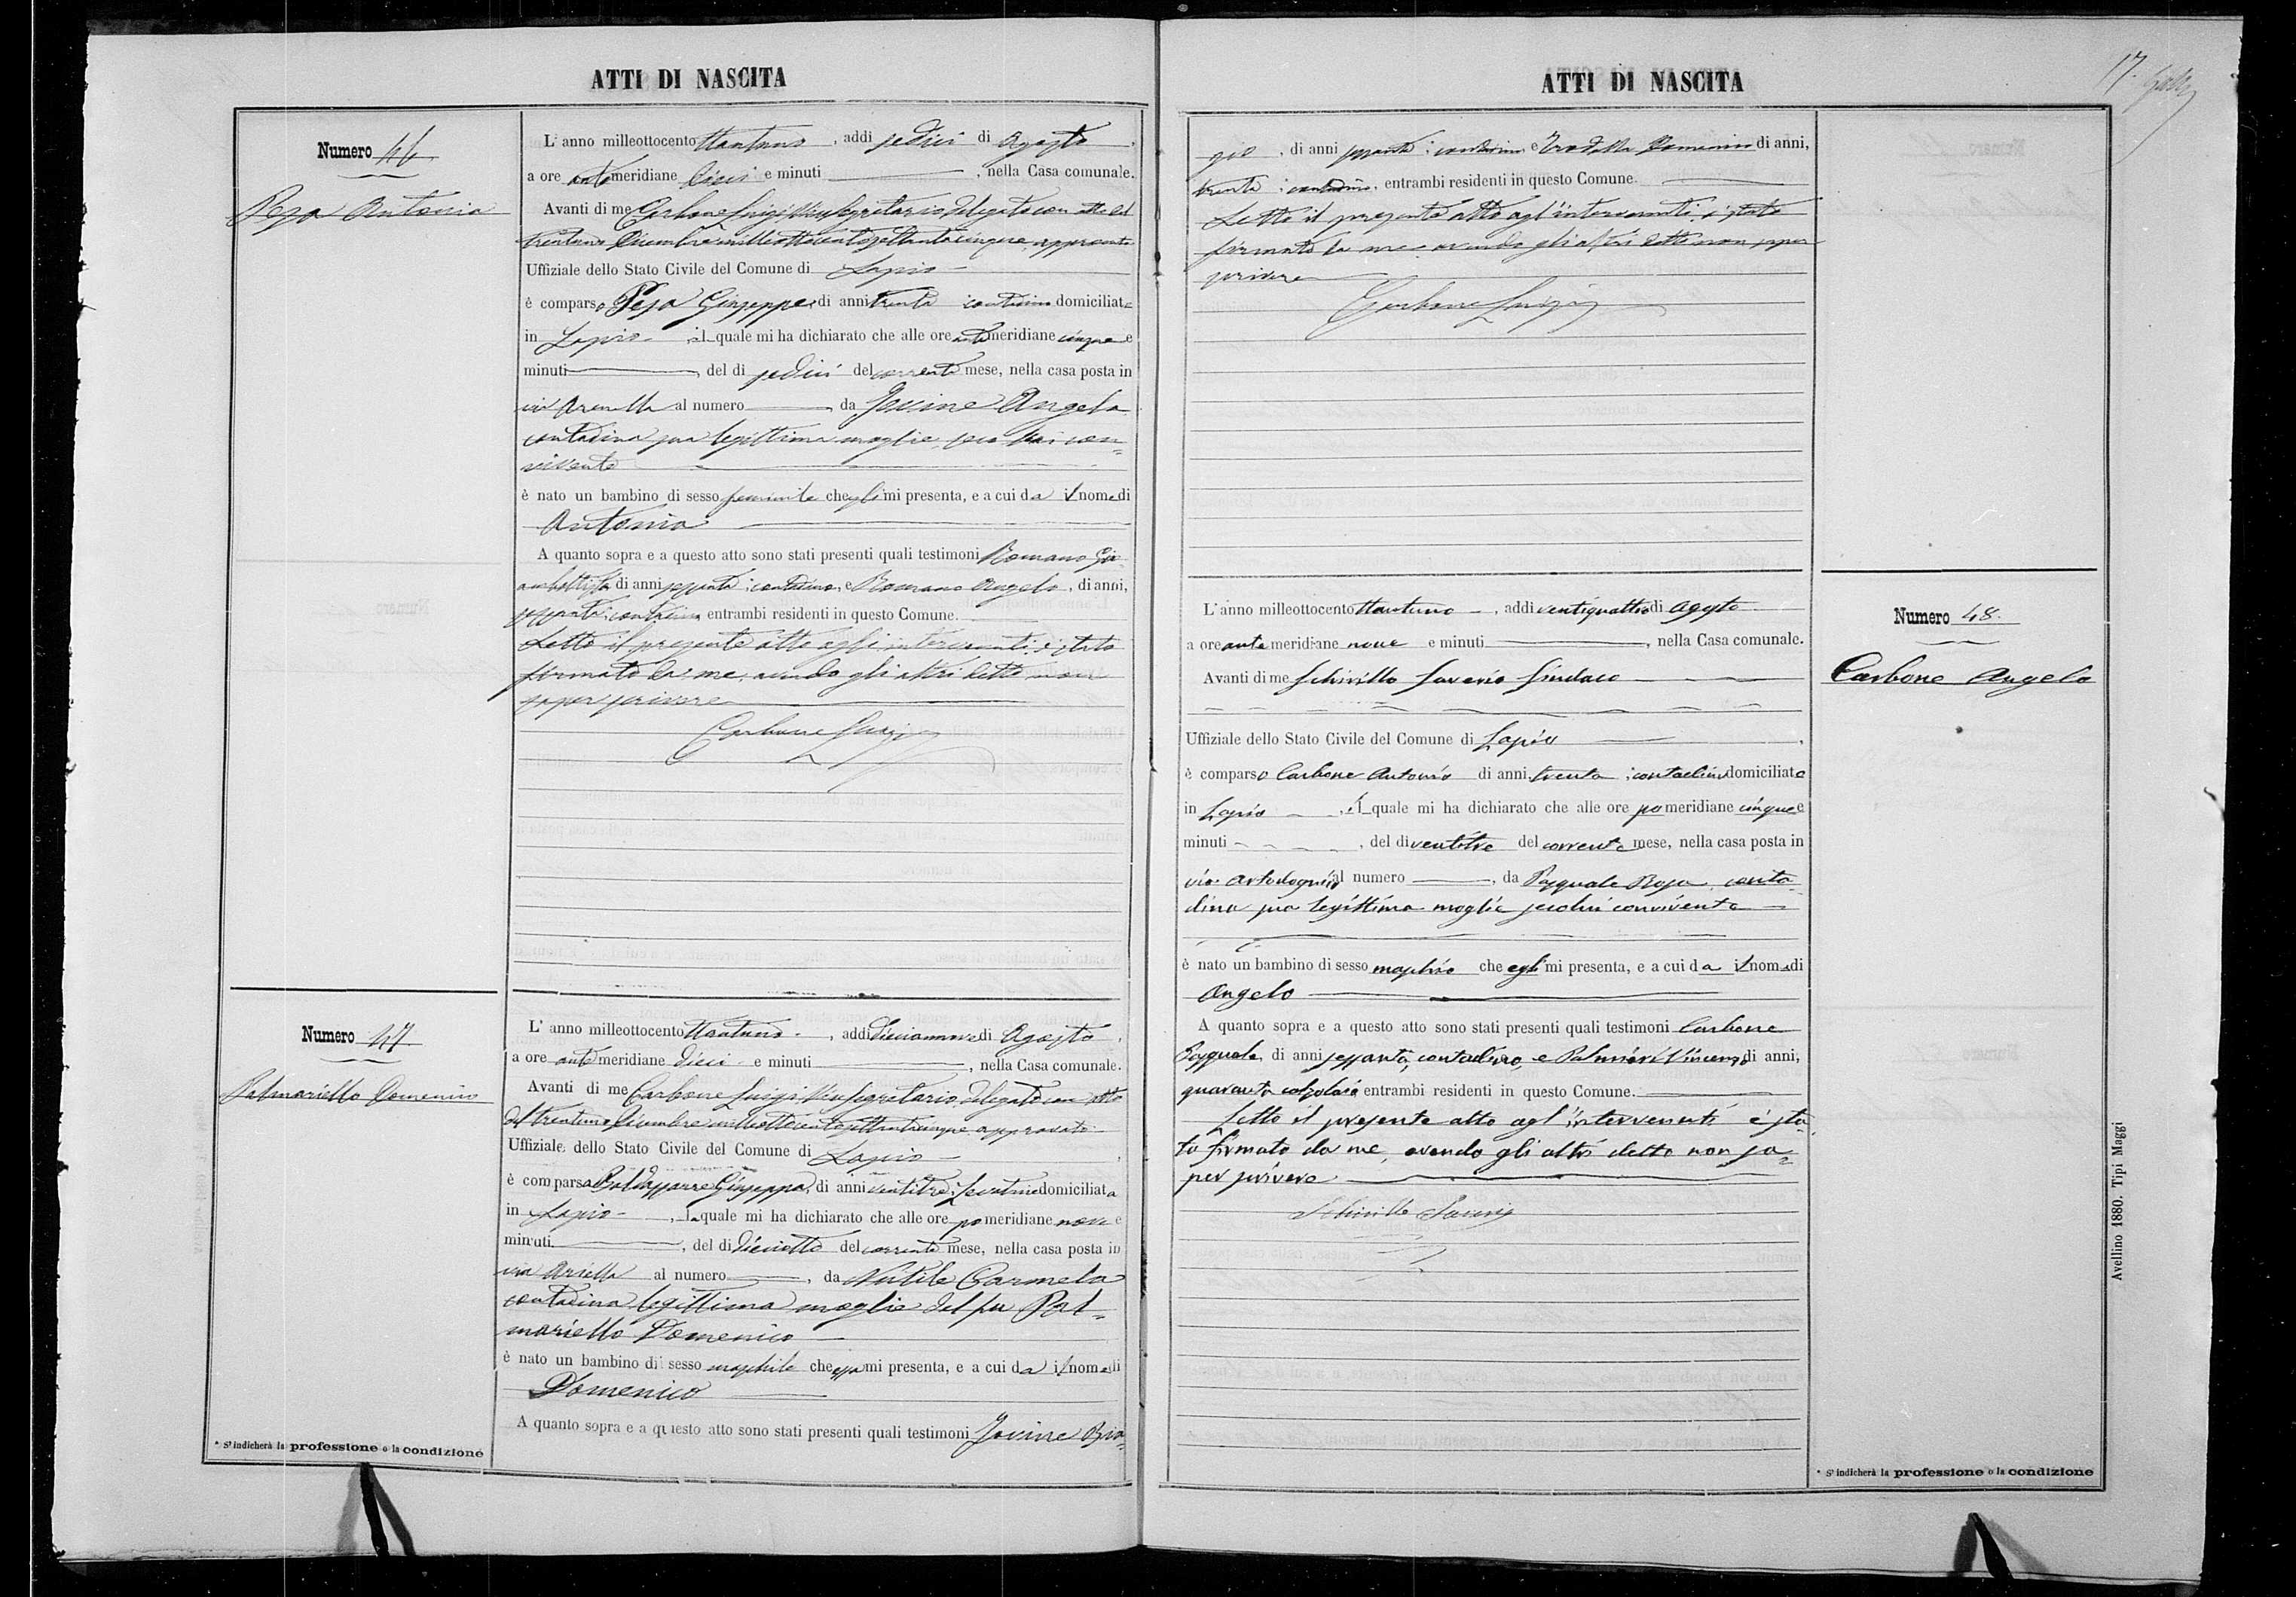 ATTI DI NASCITA
Numero 46.
Pesa Antonia
L'anno milleottocento ttantuno, addì sedici di Agosto,
a ore antemeridiane dieci e minuti, nella Casa comunale.
Avanti di me Carbone Luigi Vice Segretario delegato con atto del
trentuno Dicembre milleottocentosettantacinque, approvato
Uffiziale dello Stato Civile del Comune di Lapio
è comparso Pesa Giuseppe, di anni trenta contadino domiciliato
in Lapio, il quale mi ha dichiarato che alle ore antemeridiane cinque e
minuti, del dì sedici del corrente mese, nella casa posta in
via Arenella al numero, da Jovine Angela
contadina sua legittima moglie, seco lui con=
vivente
è nato un bambino di sesso femminile che egli mi presenta, e a cui da il nome di
Antonia
A quanto sopra e a questo atto sono stati presenti quali testimoni Romano Gio
ambattista di anni sessanta, contadino, e Romano Angelo, di anni,
sessanta, contadino entrambi residenti in questo Comune.
Letto il presente atto agli intervenuti, è stato
firmato da me, avendo gli altri detto non
saper scrivere
Carbone Luigi
Numero 47.
Palmariello Domenico
L'anno milleottocento ttantuno, addì diciannove di Agosto,
a ore antemeridiane dieci e minuti, nella Casa comunale.
Avanti di me Carbone Luigi Vice Segretario, delegato con atto
del trentuno Dicembre milleottocentosettantacinque approvato
Uffiziale dello Stato Civile del Comune di Lapio
è comparsa Baldassarre Giuseppa, di anni ventitre, levatrice domiciliata
in Lapio, la quale mi ha dichiarato che alle ore pomeridiane nove e
minuti, del dì dieciotto del corrente mese, nella casa posta in
via Ariella al numero, da Nutile Carmela
contadina legittima moglie del fu Pal=
mariello Domenico
è nato un bambino di sesso maschile che essa mi presenta, e a cui da il nome di
Domenico
A quanto sopra e a questo atto sono stati presenti quali testimoni Jovine Bia=
* Si indicherà la professione o la condizione
ATTI DI NASCITA
17.
gio, di anni contadino e Domenico di anni,
trenta, contadino, entrambi residenti in questo Comune.
Letto il presente atto agl'intervenuti, è stato
firmato da me, avendo gli altri detto non saper
scrivere
Carbone Luigi
Numero 48.
Carbone Angelo
L'anno milleottocento ttantuno, addì ventiquattro di Agosto
a ore antemeridiane nove e minuti, nella Casa comunale.
Avanti di me Schirillo Saverio Sindaco
Uffiziale dello Stato Civile del Comune di Lapio,
è comparso Carbone Antonio di anni trenta, contadino domiciliato
in Lapio, il quale mi ha dichiarato che alle ore pomeridiane cinque e
minuti, del dì ventitre del corrente mese, nella casa posta in
via al numero, da Pasquale Rosa, conta
dina sua legittima moglie secolui convivente
è nato un bambino di sesso maschio che egli mi presenta, e a cui da il nome di
Angelo
A quanto sopra e a questo atto sono stati presenti quali testimoni Carbone
Pasquale, di anni sessanta, contadino, e Palmieri Vincenzo di anni,
quaranta calzolaio entrambi residenti in questo Comune.
Letto il presente atto agl'intervenuti è sta
to firmato da me, avendo gli altri detto non sa=
per scrivere
Schirillo Saverio
* Si indicherà la professione o la condizione
Avellino 1880. Tipi Maggi